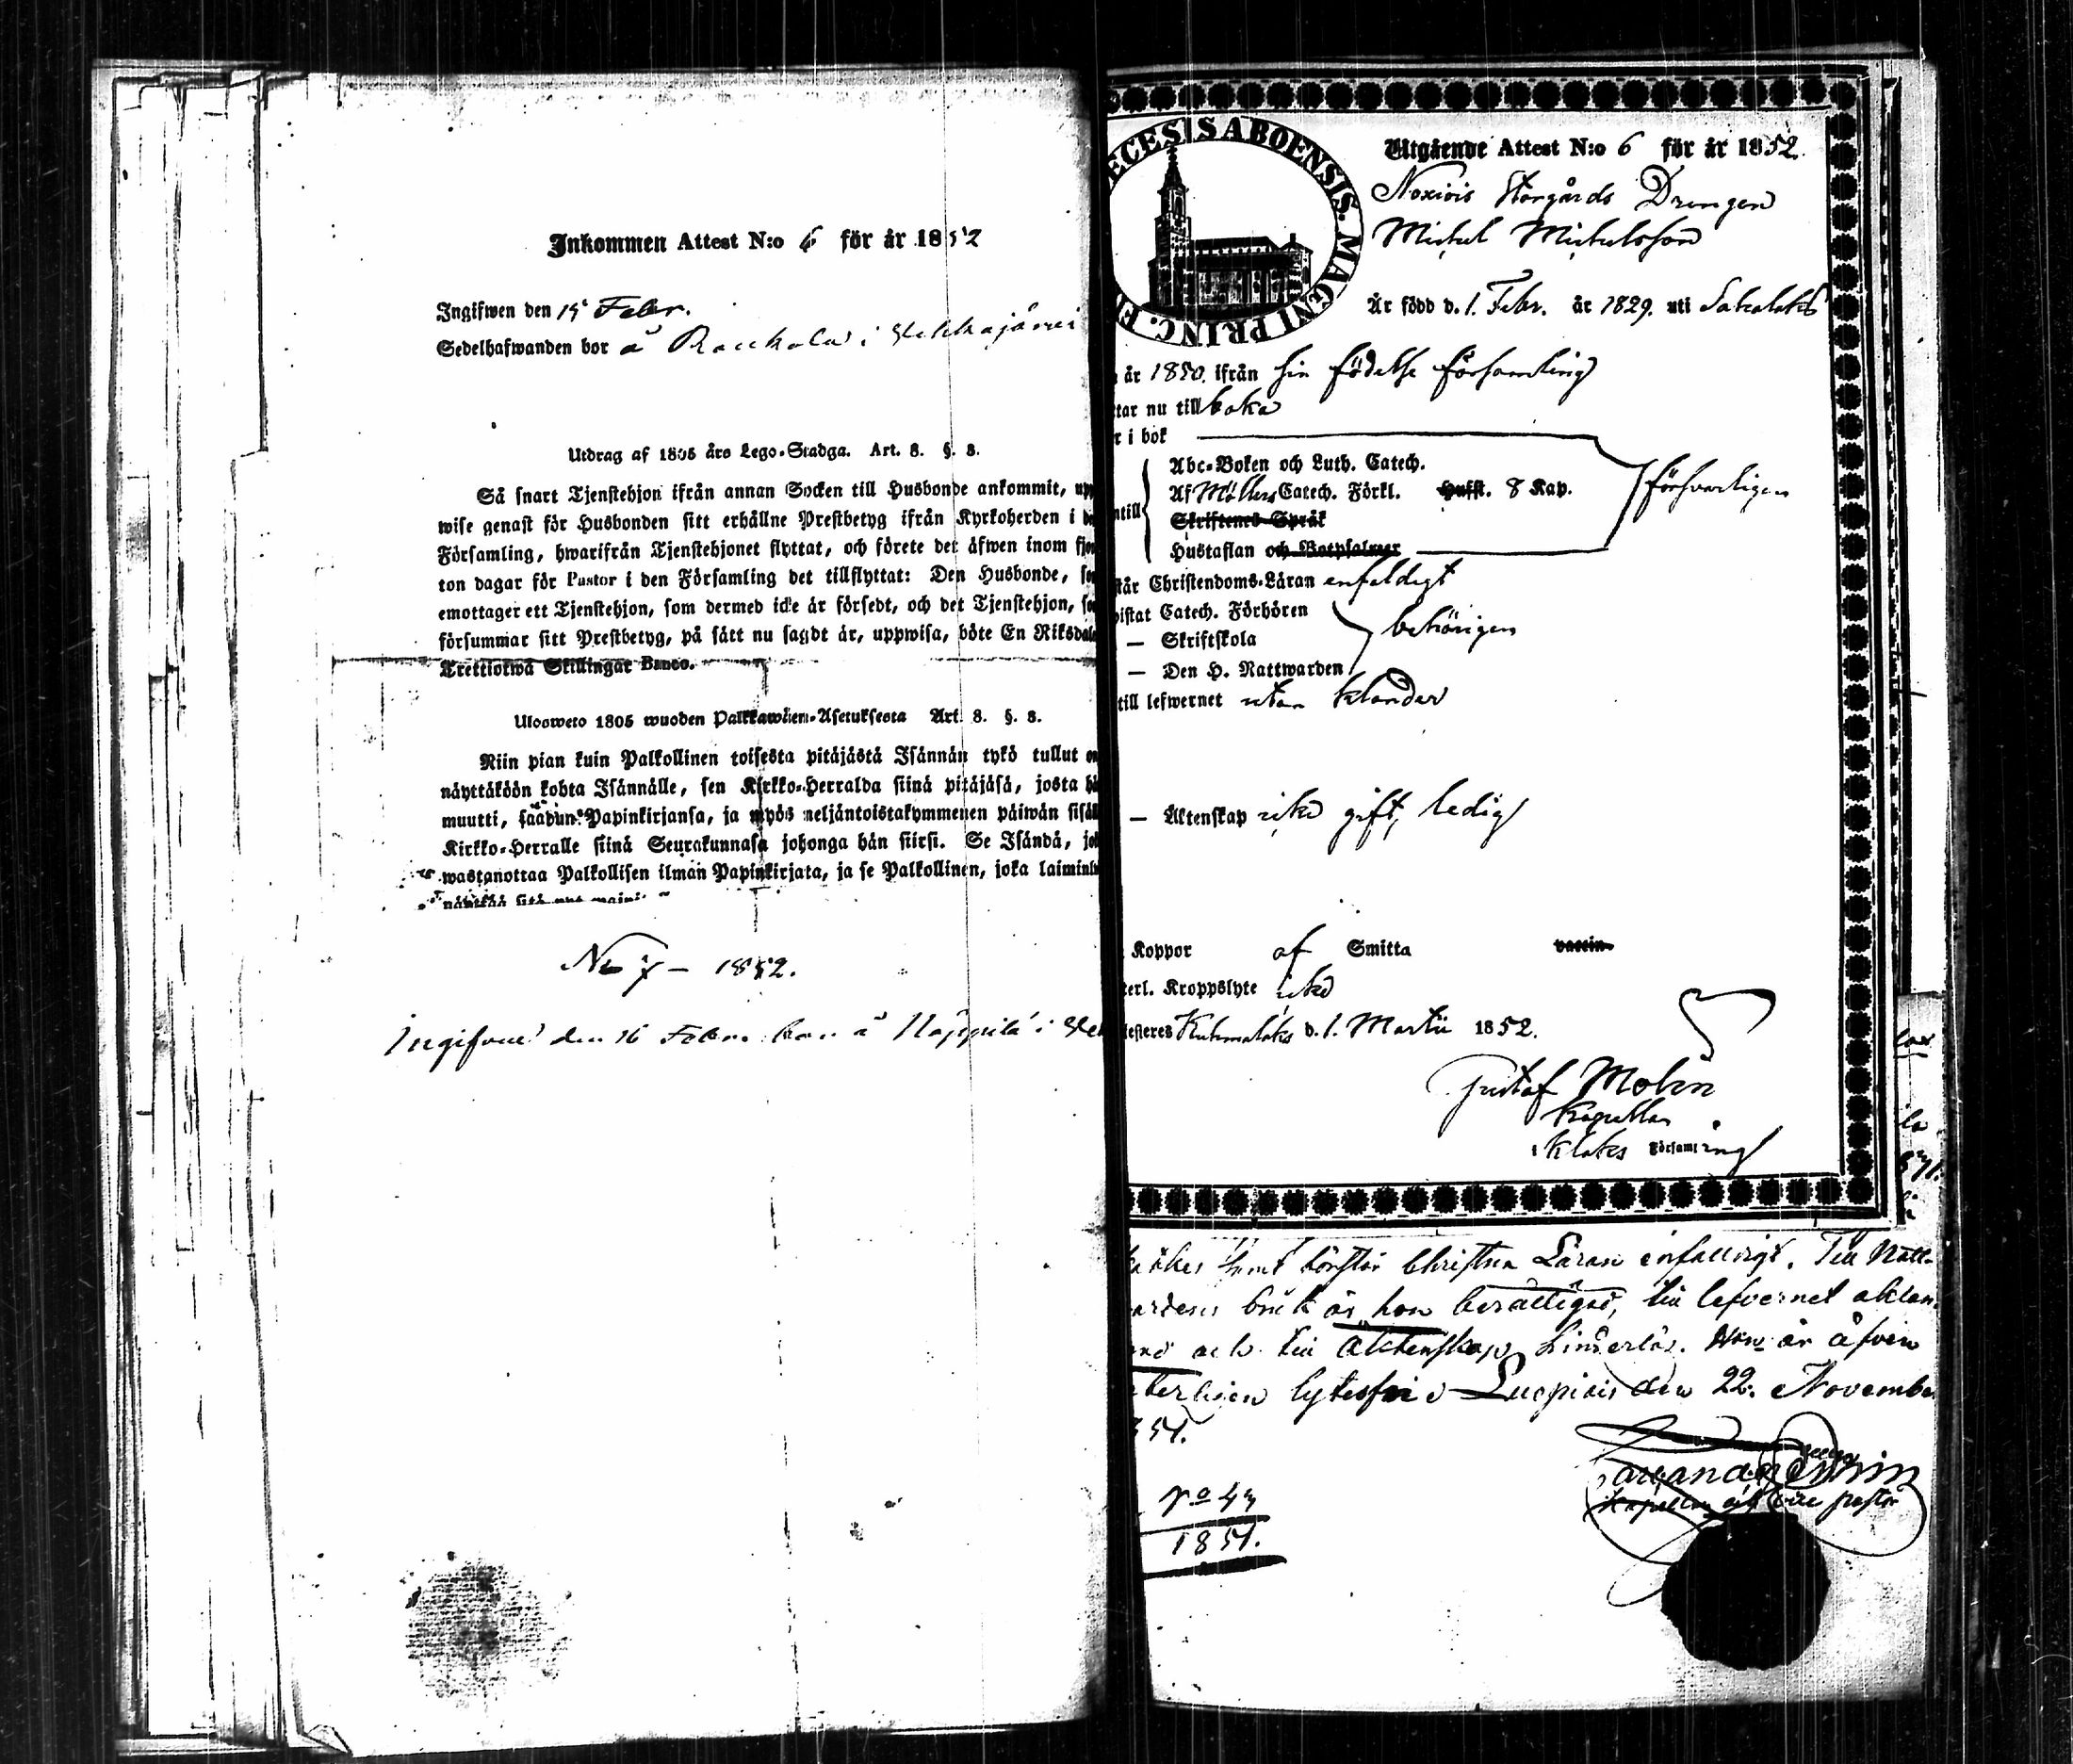 Inkommen Attest N:o 6 för år 1852
Ingifwen den 15 Febr.
Sedelhafwanden bor å Rauhala i
Utdrag af 1805 års Lego-Stadga. Art. 8. §. 8.
Så snart Tjenstehjon ifrån annan Socken till Husbonde ankommit, upp
wise genast för Husbonden sitt erhållne Prestbetyg ifrån Kyrkoherden i
Församling, hwarifrån Tjenstehjonet flyttat, och förete det äfwen inom fjor
ton dagar för Pastor i den Församling det tillflyttat: Den Husbonde, som
emottager ett Tjenstehjon, som dermed icke är försedt, och det Tjenstehjon, som
försummar sitt Prestbetyg, på sätt nu sagdt är, uppwisa, böte En Riksdal
Trettiotwå Skillingar Banco.
Ulosweto 1805 wuoden Palkkawäen-Asetuksesta Art. 8. §. 8.
Niin pian kuin Palkollinen toisesta pitäjästä Isännän tykö tullut on
näyttäköön kohta Isännälle, sen Kirkko-Herralda siinä pitäjäsä, josta hä
muutti, saadun Papinkirjansa, ja myös neljäntoistakymmenen päiwän sisäl
Kirkko-Herralle siinä Seurakunnasa johonga hän siirsi. Se Isändä, jo
wastanottaa Palkollisen ilman Papinkirjata, ja se Palkollinen, joka laiminly
No 7 – 1852.
Ingifven den 16 Febr. bor å
ECES SABOENSIS. MAGNI PRINC. F
Utgående Attest N:o 6 för år 1852.
Storgårds Drengen
Michel Michelsson
År född d. 1. Febr. år 1829. uti Sahalaks
år 1850. ifrån sin födelse församling
tar nu till baka
r i bok
Abc-Boken och Luth. Catech.
Af Möllers Catech. Förkl. Husst. 8 Kap. försvarligen
ntill Skriftenes Språk
Hustaflan och Botpsalmer
står Christendoms-Läran enfaldigt
istat Catech. Förhören
— Skriftskola behörigen
— Den H. Nattwarden
till lefwernet utan klander
— Äktenskap icke gift, ledig
Koppor af Smitta vaccin
terl. Kroppslyte icke
testeres Kuhmalaks d. 1. Martii 1852.
Gustaf Molin
Kapellan
Klaks Församling
samt förstår Christna Läran enfalldigt. Till Natt-
ardens bruk är hon berättigad, till lefvernet oklan-
och till Äktenskap hinderlös. Hon är äfven
terligen lytesfri. Luopiois den 22. Novembe
51.
No 43
1851.
Kapellan och Vice pastor